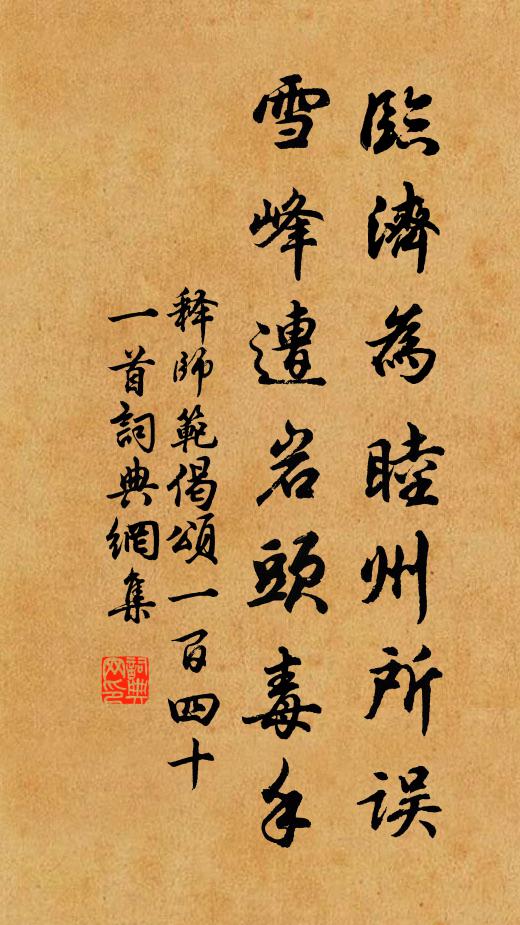 臨濟為睦州所误
雪峰遭岩頭毒手
释師範偈頌一百四十
一首詞典網集
詞典网印